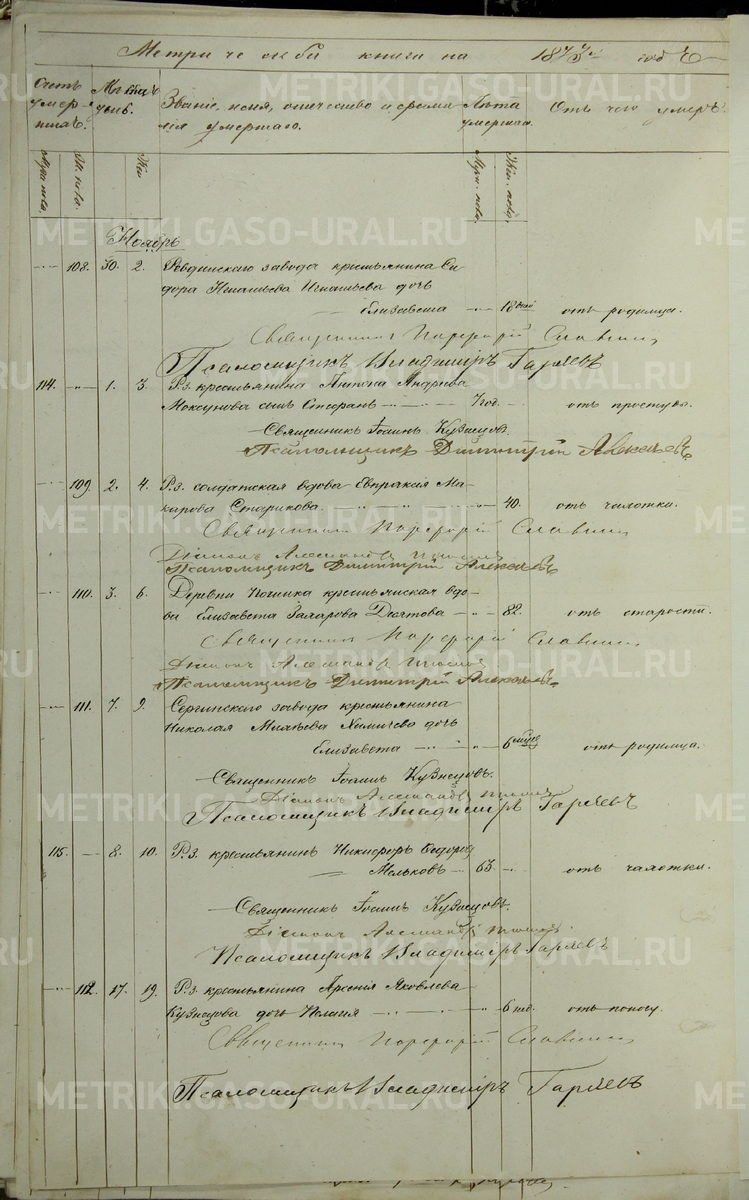 Метрической книги на 1875й годъ
Счетъ умершихъ. Мѣсяцъ и день. Званіе, имя, отчество и фамилія умершаго. Лѣта умершаго. Отъ чего умеръ.
Муж. пола. Ж. пола. Муж. пола. Жен. пола.
Ноябрь
108. 30. 2. Ревдинскаго завода крестьянина Сидора Игнатьева дочь
Елизавета 18 дней отъ родимца.
Священникъ Порфирій Славнинъ
Псаломщикъ Владиміръ Гаряевъ
114. 1. 3. Р.з. крестьянина Антона Андреева
сынъ Стефанъ 7 год. отъ простуды.
Священникъ Іоаннъ Кузнецовъ.
Псаломщикъ Димитрій Алексѣевъ
109. 2. 4. Р.з. солдатская вдова Евпраксия Макарова Старикова. 40. отъ чахотки.
Священникъ Порфирій Славнинъ
Діаконъ Александръ
Псаломщикъ Димитрій Алексѣевъ
110. 3. 6. Деревни Починка крестьянская вдова Елизавета Захарова 82. отъ старости.
Священникъ Порфирій Славнинъ
Діаконъ Александръ
Псаломщикъ Димитрій Алексѣевъ
111. 7. 9. Сергинскаго завода крестьянина
Николая дочь
Елизавета 6 отъ родимца.
Священникъ Іоаннъ Кузнецовъ.
Діаконъ Александръ
Псаломщикъ Владиміръ Гаряевъ
115. 8. 10. Р.з. крестьянинъ Никифоръ Сидоровъ
Мельковъ 63. отъ чахотки.
Священникъ Іоаннъ Кузнецовъ.
Діаконъ Александръ
Псаломщикъ Владиміръ Гаряевъ
112. 17. 19. Р.з. крестьянина Арсенія Яковлева
Кузнецова дочь Пелагія 6 отъ поносу.
Священникъ Порфирій Славнинъ
Псаломщикъ Владиміръ Гаряевъ
METRIKI.GASO-URAL.RU